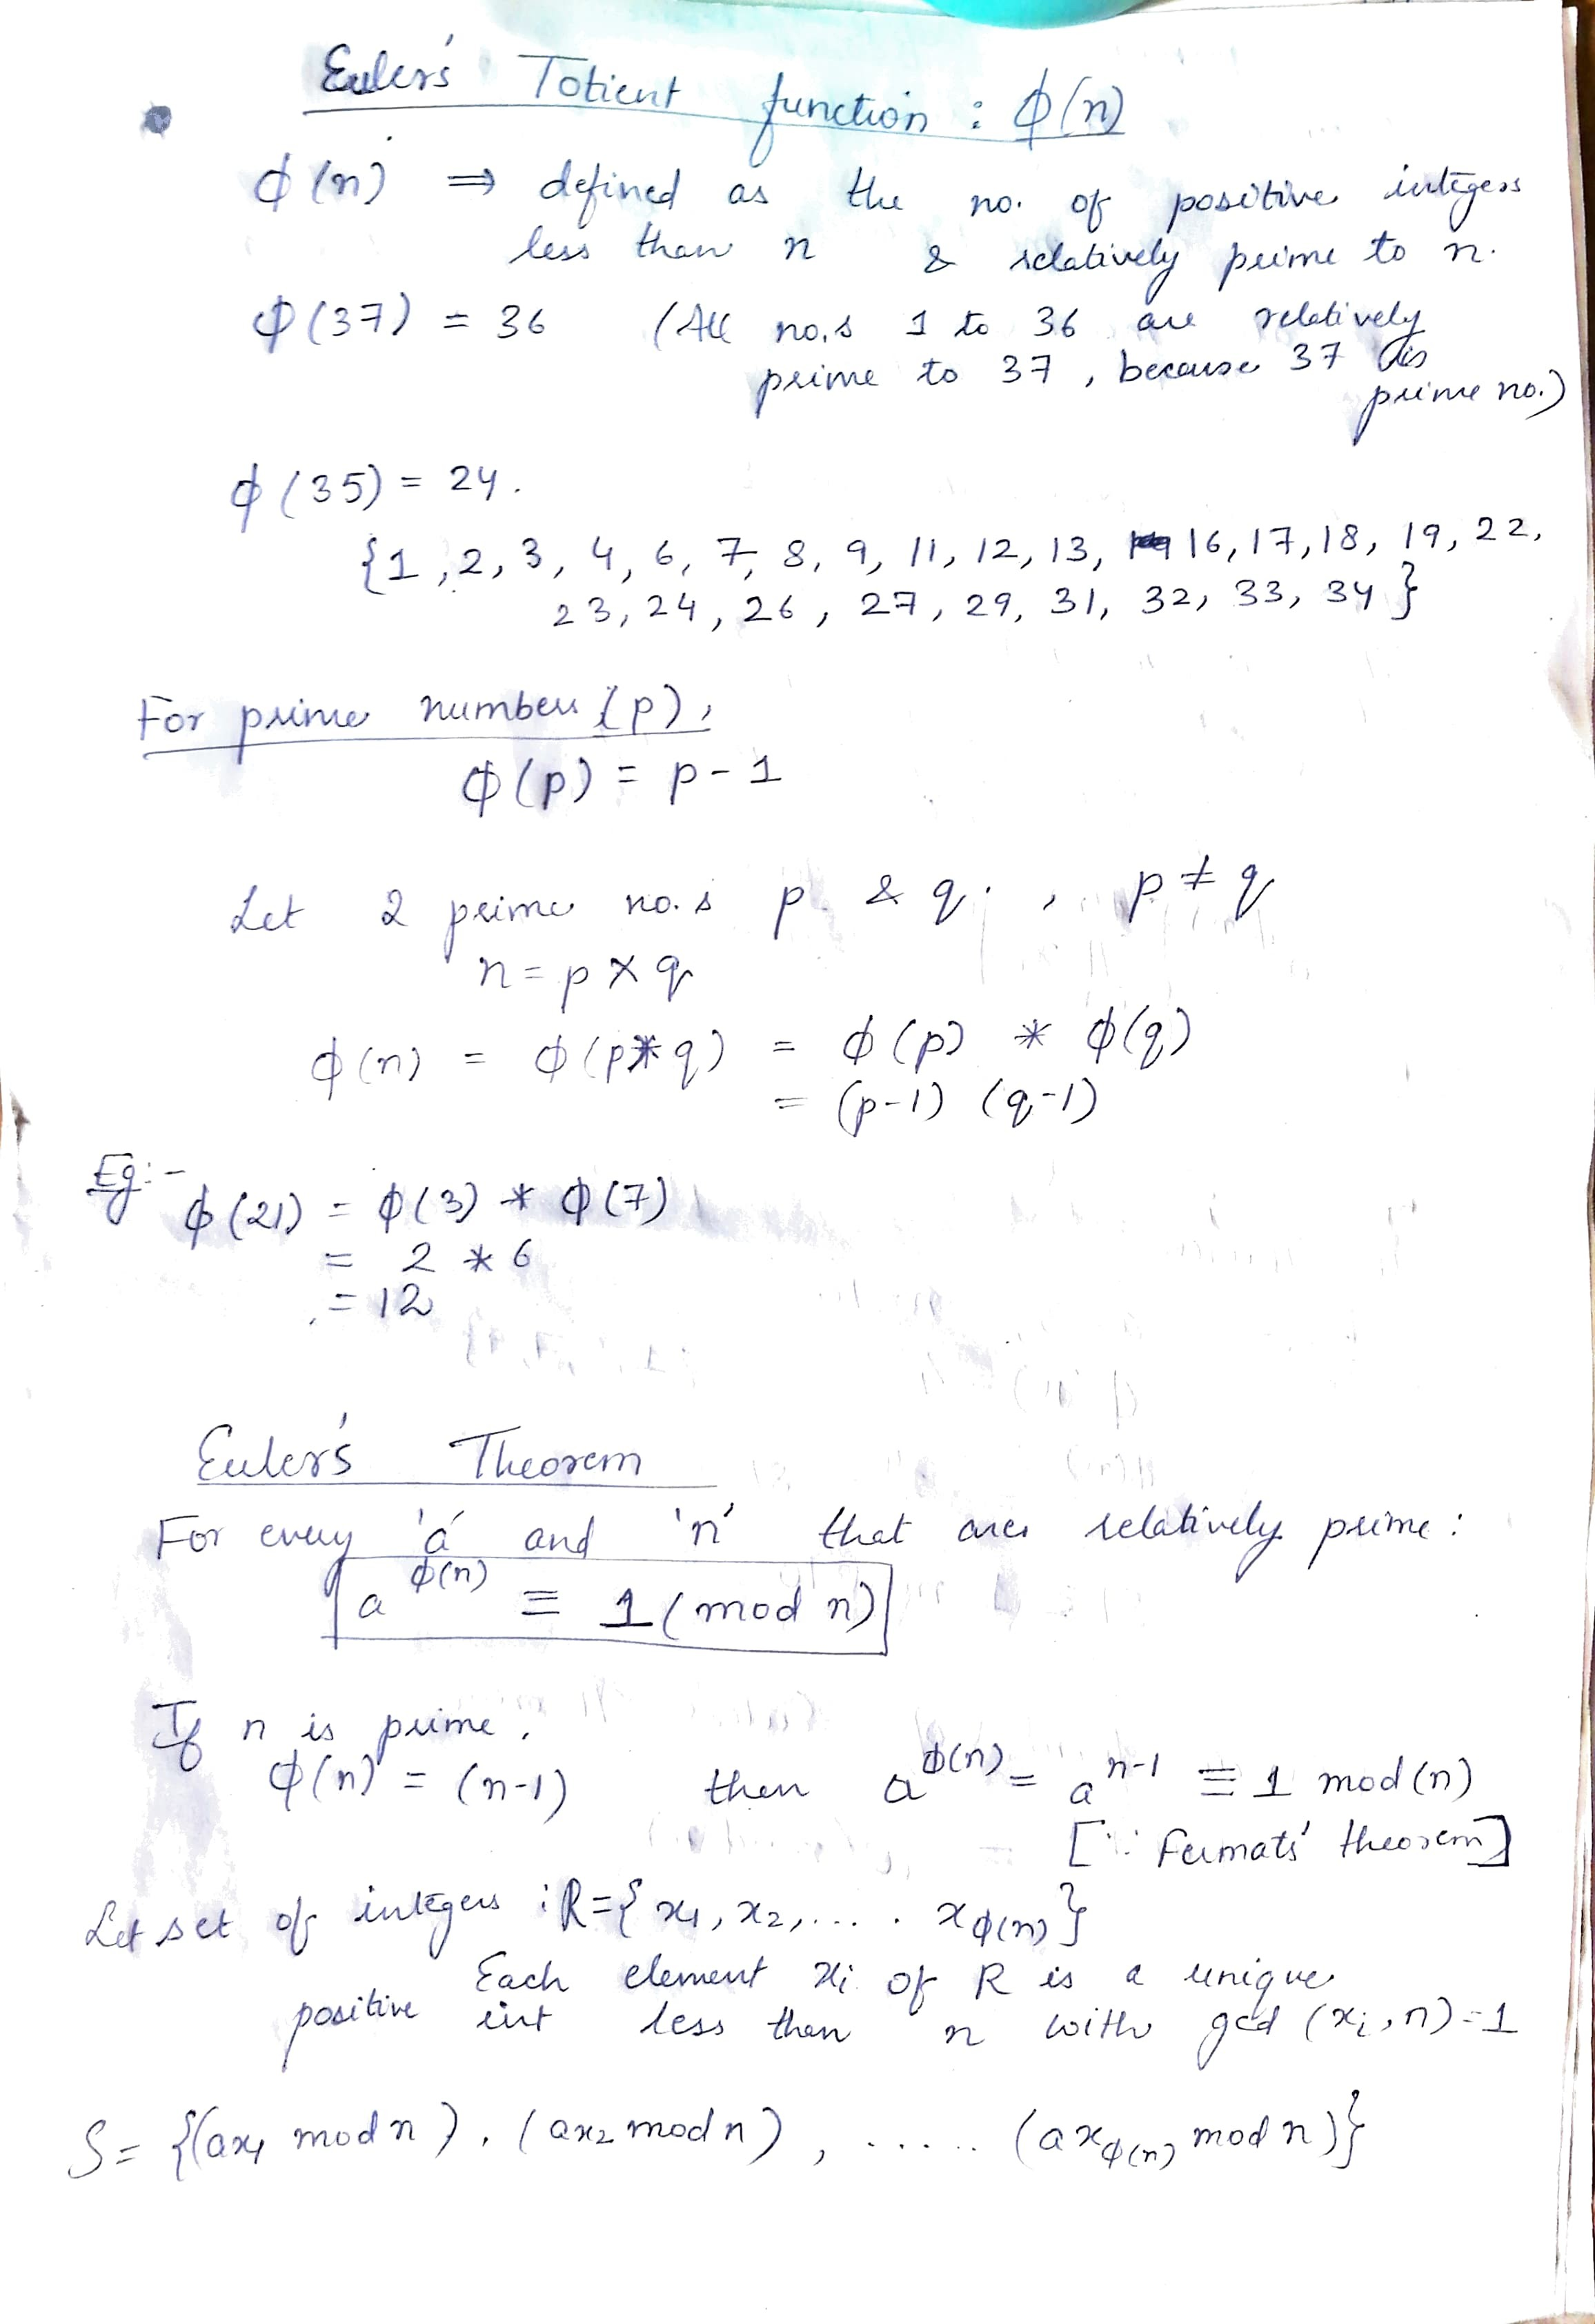 Euler's Totient function : ϕ(n)
ϕ(n) ⇒ defined as the no. of positive integers
less than n & relatively prime to n.
ϕ(37) = 36 (All no.s 1 to 36 are relatively
prime to 37, because 37 is
prime no.)
ϕ(35) = 24.
{1, 2, 3, 4, 6, 7, 8, 9, 11, 12, 13, 16, 17, 18, 19, 22,
23, 24, 26, 27, 29, 31, 32, 33, 34}
For prime numbers (p),
ϕ(p) = p - 1
Let 2 prime no.s p & q , p ≠ q
n = p × q
ϕ(n) = ϕ(p*q) = ϕ(p) * ϕ(q)
= (p-1) (q-1)
Eg:-
ϕ(21) = ϕ(3) * ϕ(7)
= 2 * 6
= 12
Euler's Theorem
For every 'a' and 'n' that are relatively prime :
a^ϕ(n) ≡ 1 (mod n)
If n is prime,
ϕ(n) = (n-1) then a^ϕ(n) = a^n-1 ≡ 1 mod (n)
[∵ Fermats' theorem]
Let set of integers : R = {x₁, x₂, .... x_ϕ(n)}
Each element xᵢ of R is a unique
positive int less than n with gcd (xᵢ, n) = 1
S = {(ax₁ mod n), (ax₂ mod n), ...... (ax_ϕ(n) mod n)}